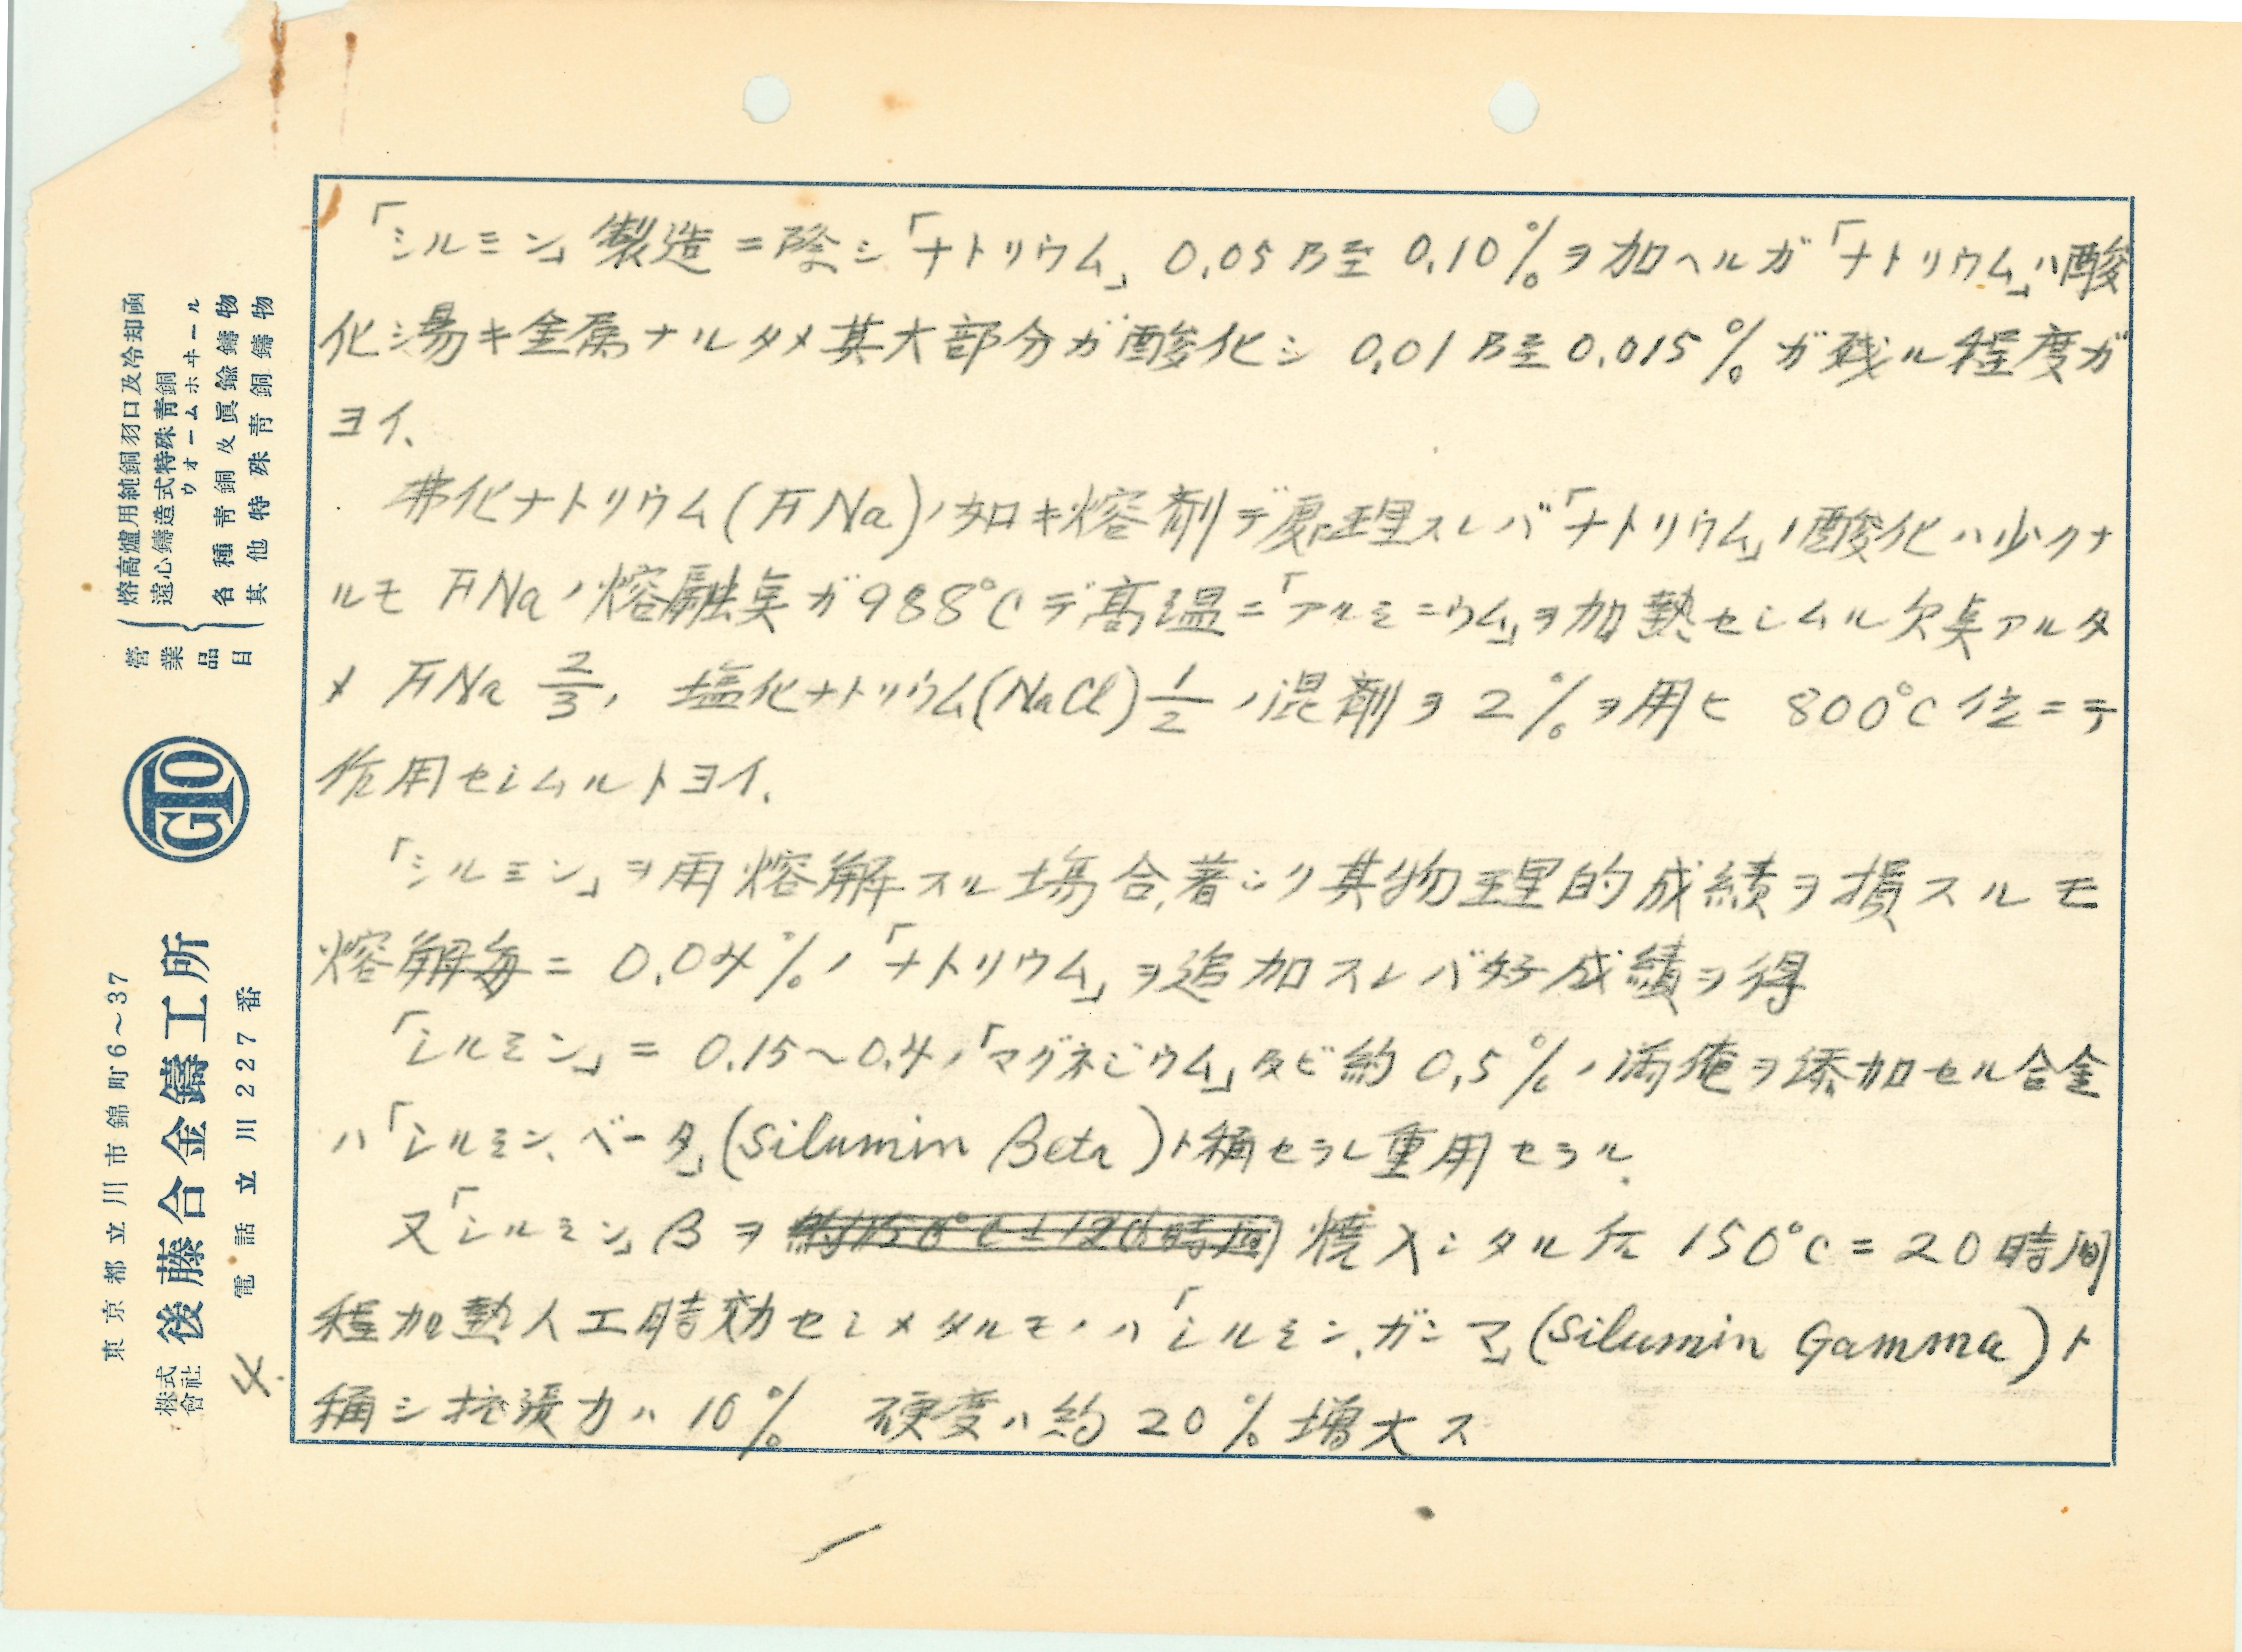 「シルミン」製造ニ際シ「ナトリウム」0.05乃至0.10%ヲ加ヘルガ「ナトリウム」ハ酸
化シ易キ金属ナルタメ其大部分ガ酸化シ 0.01乃至0.015%ガ残ル程度ガ
ヨイ、
弗化ナトリウム(FNa)ノ如キ熔剤デ処理スレバ「ナトリウム」ノ酸化ハ少クナ
ルモ FNaノ熔融点ガ988°Cデ高温ニ「アルミニウム」ヲ加熱セシムル欠点アルタ
メ FNa 2/3, 塩化ナトリウム(NaCl) 1/2 ノ混剤ヲ2%ヲ用ヒ 800°C位ニテ
作用セシムルトヨイ、
「シルミン」ヲ再熔解スル場合、著シク其物理的成績ヲ損スルモ
熔解毎ニ 0.04%ノ「ナトリウム」ヲ追加スレバ好成績ヲ得
「シルミン」ニ 0.15~0.4ノ「マグネシウム」及ビ約0.5%ノ満俺ヲ添加セル合金
ハ「シルミン、ベータ」(Silumin Beta)ト称セラレ重用セラル、
又「シルミン」βヲ 焼入シタル后 150°Cニ20時間
程加熱人工時効セシメタルモノハ「シルミン、ガンマ」(Silumin Gamma)ト
称シ抗張力ハ10% 硬度ハ約20%増大ス
4.
東京都立川市錦町6~37
株式會社 後藤合金鑄工所
電話立川227番
GTO
營業品目
熔高爐用純銅羽口及冷却函
遠心鑄造式特殊靑銅
ウオームホヰール
各種靑銅及眞鍮鑄物
其他特殊靑銅鑄物